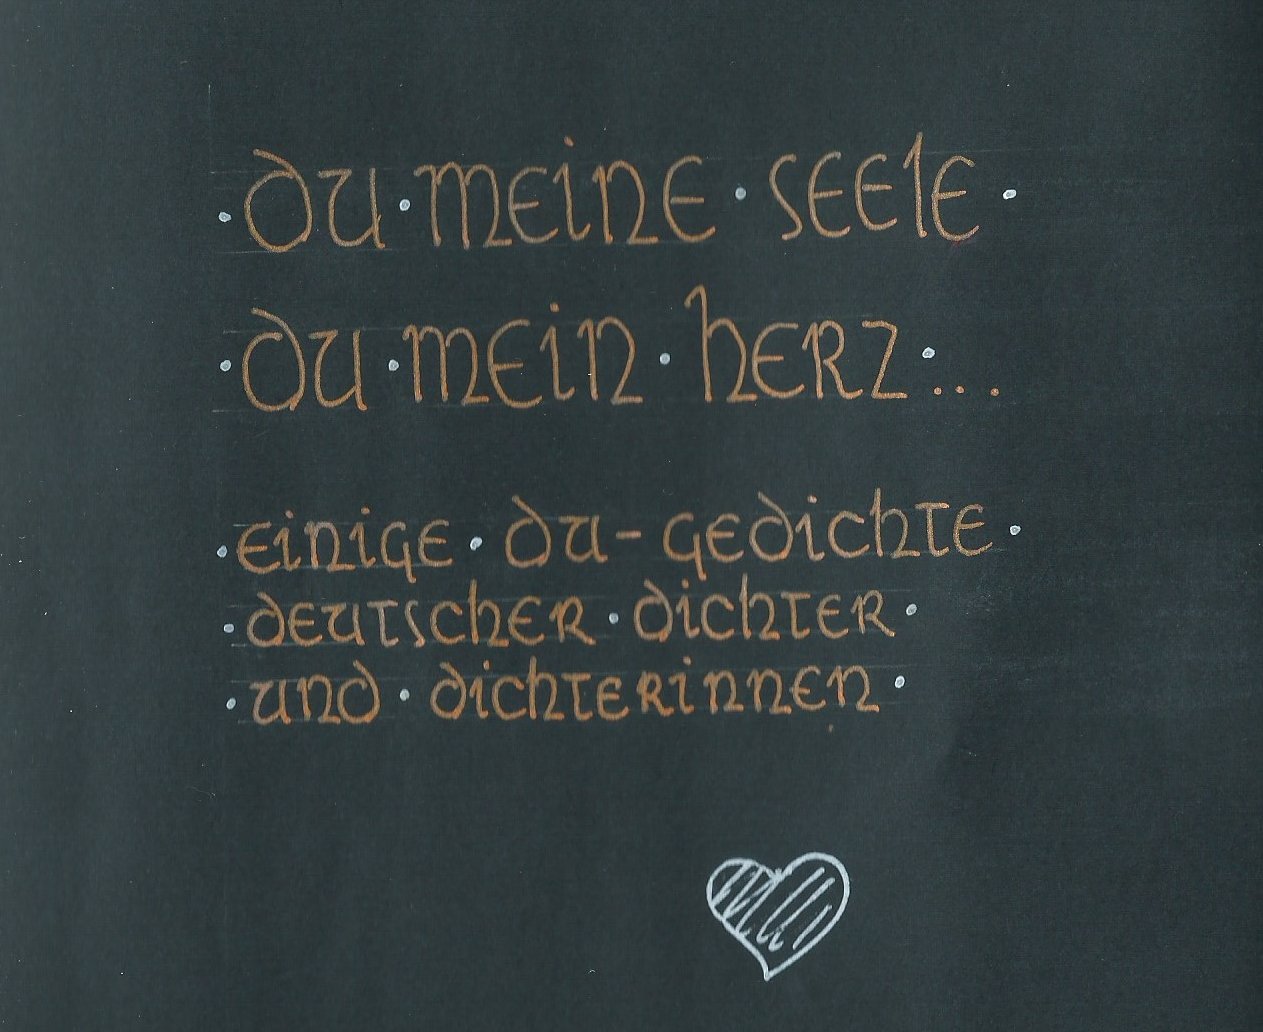 ·du·meine·seele·
·du·mein·herz·...
·einige·du-gedichte·
·deutscher·dichter·
·und·dichterinnen·